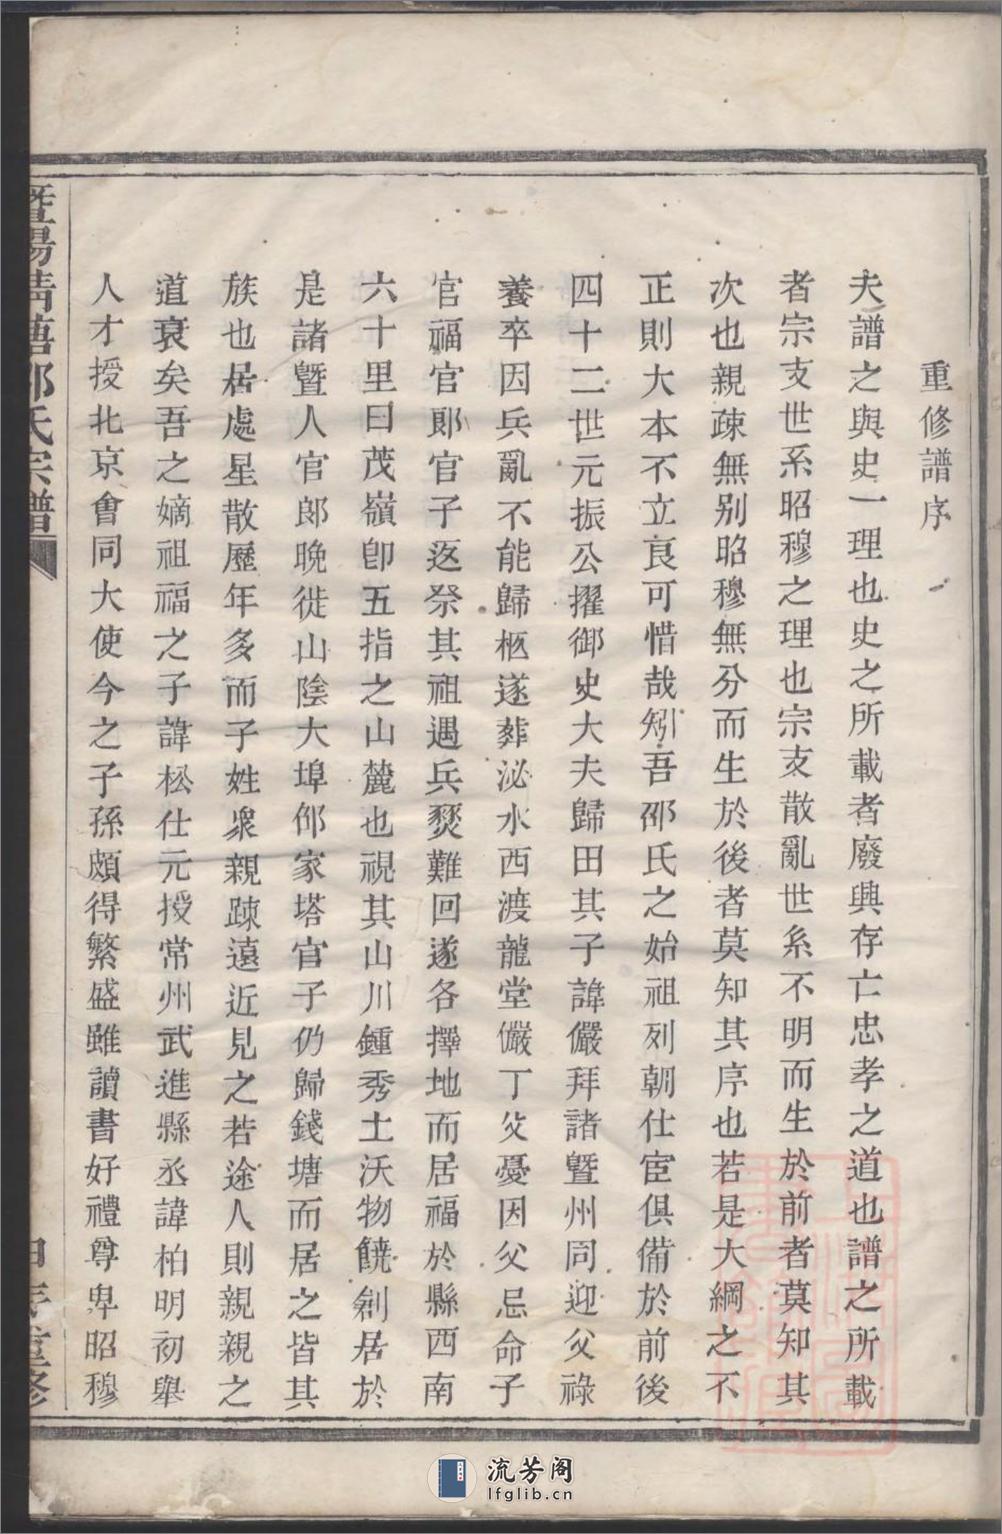 重修譜序
夫譜之與史一理也史之所載者廢興存亡忠孝之道也譜之所載
者宗支世系昭穆之理也宗支散亂世系不明而生於前者莫知其
次也親疎無別昭穆無分而生於後者莫知其序也若是大綱之不
正則大本不立良可惜哉矧吾邵氏之始祖列朝仕宦俱備於前後
四十二世元振公擢御史大夫歸田其子諱儼拜諸暨州同迎父祿
養卒因兵亂不能歸柩遂葬泌水西渡龍堂儼丁父憂因父忌命子
官福官郞官子返祭其祖遇兵燹難回遂各擇地而居福於縣西南
六十里曰茂嶺卽五指之山麓也視其山川鍾秀土沃物饒創居於
是諸暨人官郎晚徙山陰大埠邵家塔官子仍歸錢塘而居之皆其
族也居處星散歷年多而子姓衆親踈遠近見之若途人則親親之
道衰矣吾之嫡祖福之子諱松仕元授常州武進縣丞諱柏明初舉
人才授北京會同大使今之子孫頗得繁盛雖讀書好禮尊卑昭穆
氏宗譜
流芳阁
lfglib.cn